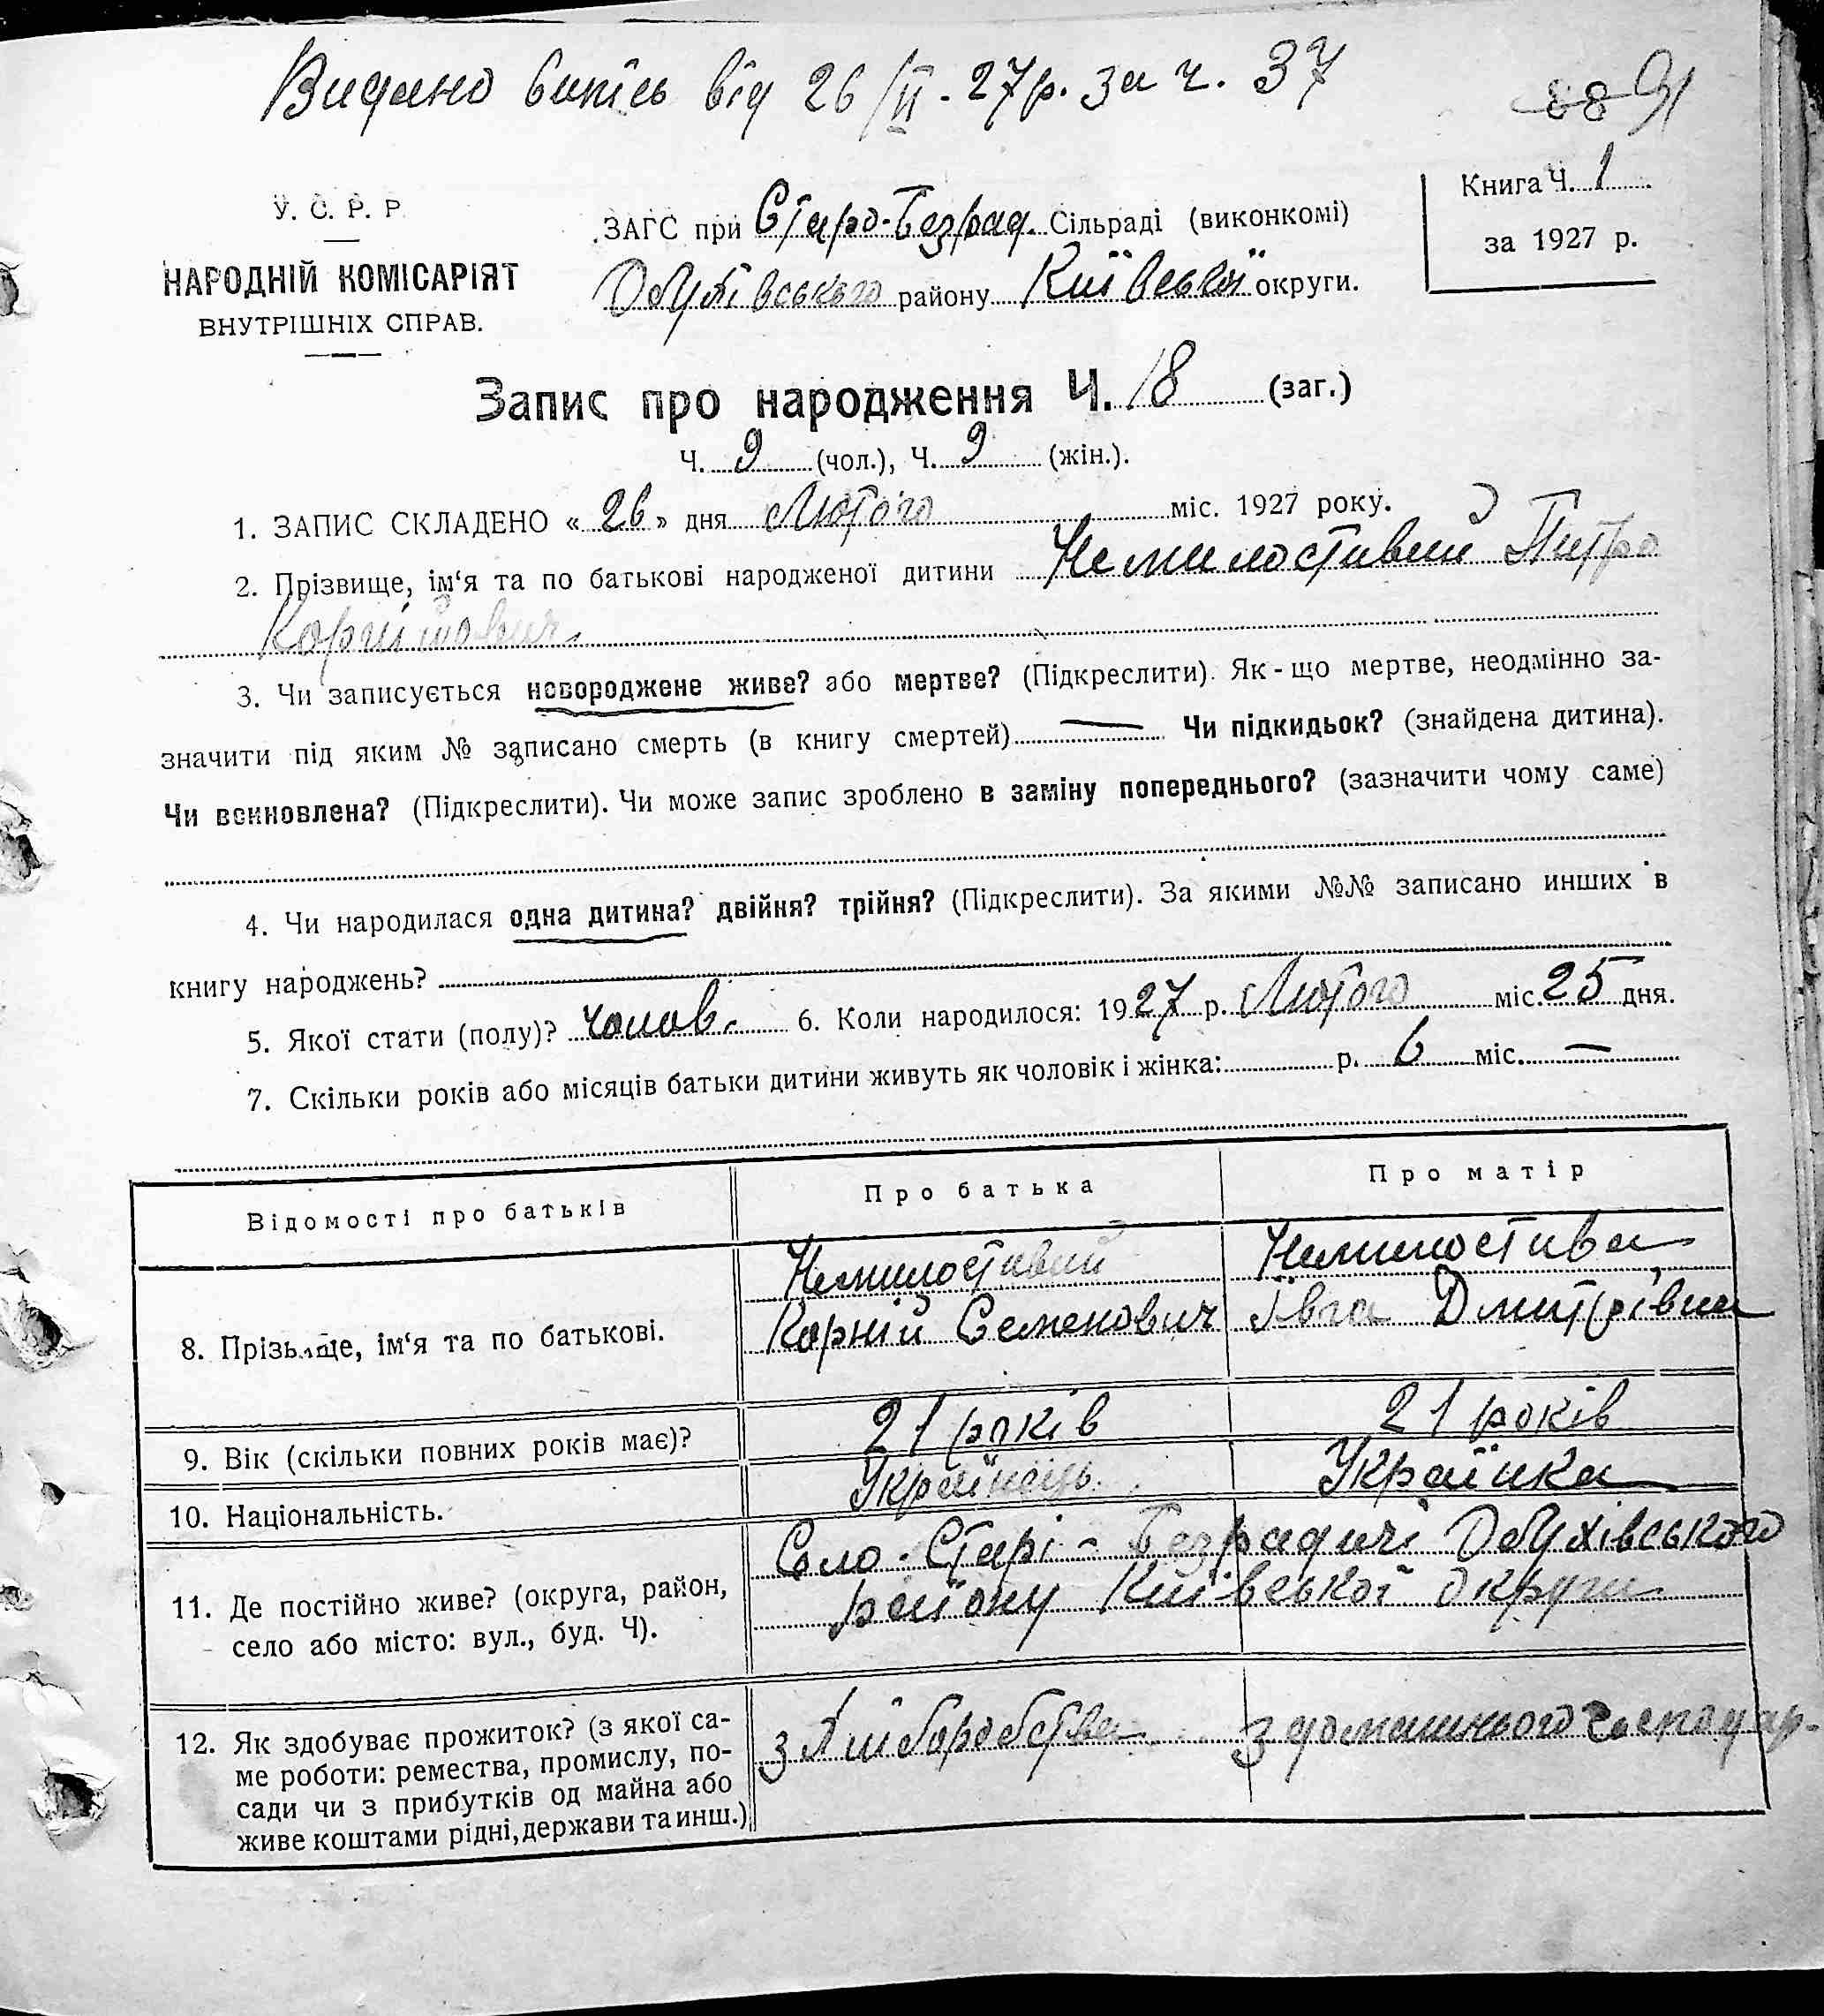 Видано витяг від 26/II-27р. за ч. 37
88 91
У. С. Р. Р.
НАРОДНІЙ КОМІСАРІЯТ
ВНУТРІШНІХ СПРАВ.
ЗАГС при Старо-Безрад. Сільраді (виконкомі)
Обухівського району Київської округи.
Книга Ч. 1
за 1927 р.
Запис про народження Ч. 18 (заг.)
Ч. 9 (чол.), Ч. 9 (жін.).
1. ЗАПИС СКЛАДЕНО « 26 » дня Лютого міс. 1927 року.
2. Прізвище, ім‘я та по батькові народженої дитини Немилостивий Питро
Корнійович
3. Чи записується новороджене живе? або мертве? (Підкреслити). Як-що мертве, неодмінно за-
значити під яким № записано смерть (в книгу смертей) — Чи підкидьок? (знайдена дитина).
Чи всиновлена? (Підкреслити). Чи може запис зроблено в заміну попереднього? (зазначити чому саме)
4. Чи народилася одна дитина? двійня? трійня? (Підкреслити). За якими №№ записано инших в
книгу народжень?
5. Якої стати (полу)? чолов. 6. Коли народилося: 1927 р. Лютого міс. 25 дня.
7. Скільки років або місяців батьки дитини живуть як чоловік і жінка: р. 6 міс. —
Відомості про батьків Про батька Про матір
8. Прізвище, ім‘я та по батькові.
Немилостивий Немилостива
Корній Семенович Ївга Дмитрівна
9. Вік (скільки повних років має)? 21 років 21 років
10. Національність. Українець. Українка
11. Де постійно живе? (округа, район,
село або місто: вул., буд. Ч).
Село-Старі-Безрадичі Обухівського
району Київської округи
12. Як здобуває прожиток? (з якої са-
ме роботи: ремества, промислу, по-
сади чи з прибутків од майна або
живе коштами рідні, держави та инш.)
з хліборобства з домашнього господар-